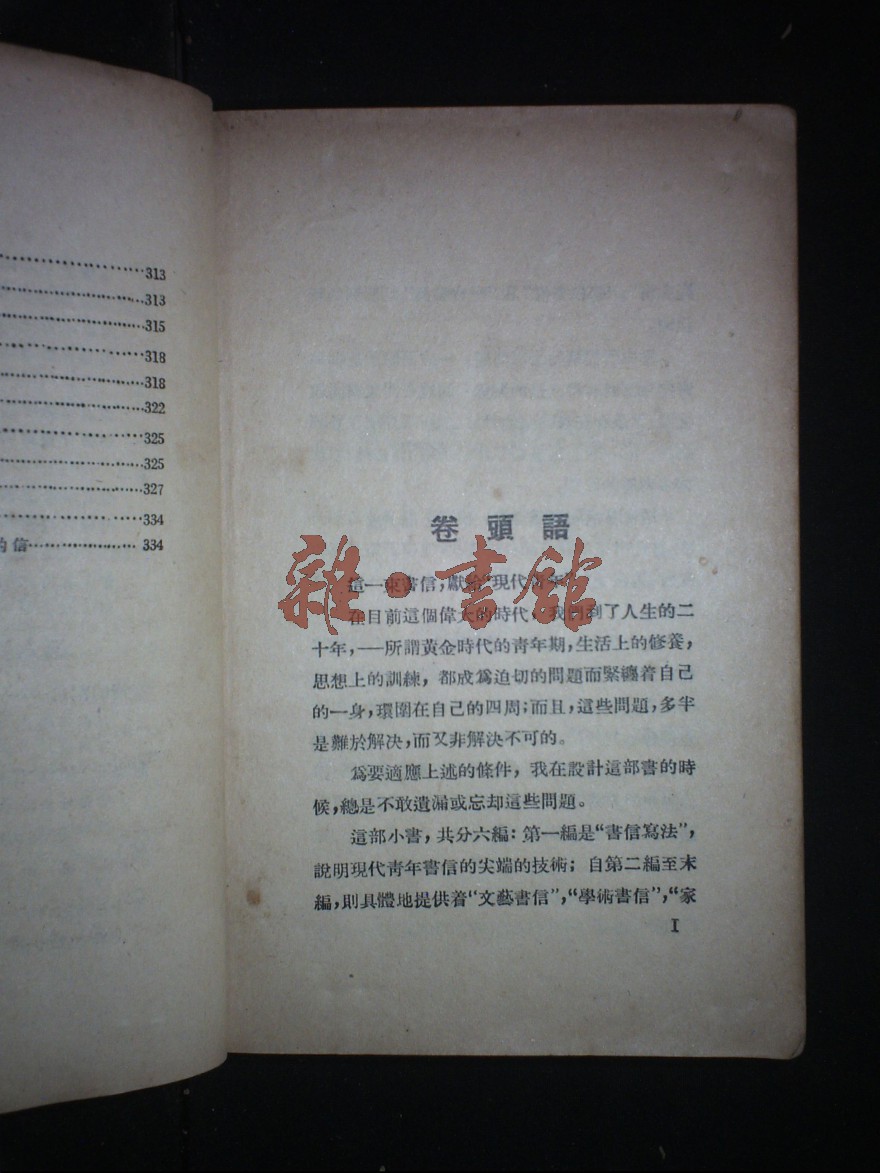 313
313
315
318
318
322
325
325
327
334
的信 334
卷頭語
這一束書信,獻給“現代青年”。
在目前這個偉大的時代,我們到了人生的二
十年,——所謂黃金時代的靑年期,生活上的修養,
思想上的訓練,都成爲迫切的問題而緊纏着自己
的一身,環圍在自己的四周;而且,這些問題,多半
是難於解決,而又非解決不可的。
爲要適應上述的條件,我在設計這部書的時
候,總是不敢遺漏或忘却這些問題。
這部小書,共分六編:第一編是“書信寫法”,
說明現代靑年書信的尖端的技術;自第二編至末
編,則具體地提供着“文藝書信”,“學術書信”,“家
I
雜·書館